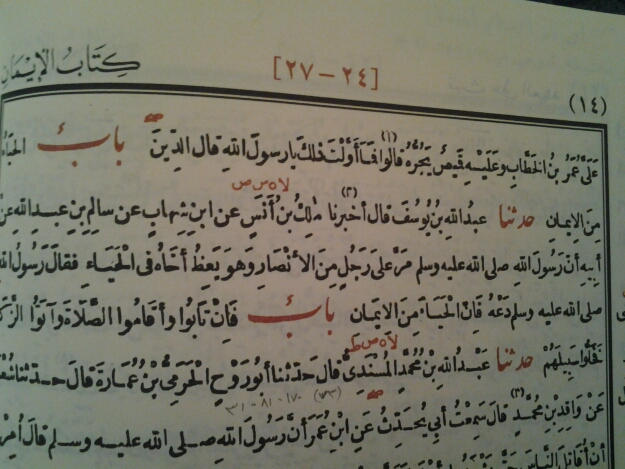 كِتَابُ الْإِيمَانِ
[٢٤ - ٢٧]
(١٤)
عَلَيَّ عُمَرُ بْنُ الْخَطَّابِ وَعَلَيْهِ قَمِيصٌ يَجُرُّهُ قَالُوا (١) فَمَا أَوَّلْتَ ذٰلِكَ يَا رَسُولَ اللهِ قَالَ الدِّينَ بَابٌ الْحَيَاءُ
مِنَ الْإِيمَانِ حدثنا عَبْدُ اللهِ بْنُ يُوسُفَ قَالَ أَخْبَرَنَا (٢) مٰلِكُ بْنُ أَنَسٍ عَنِ ابْنِ شِهَابٍ عَنْ سَالِمِ بْنِ عَبْدِ اللهِ عَنْ
أَبِيهِ أَنَّ رَسُولَ اللهِ صلى الله عليه وسلم مَرَّ عَلَى رَجُلٍ مِنَ الْأَنْصَارِ وَهْوَ يَعِظُ أَخَاهُ فِي الْحَيَاءِ فَقَالَ رَسُولُ اللهِ
صلى الله عليه وسلم دَعْهُ فَإِنَّ الْحَيَاءَ مِنَ الْإِيمَانِ بَابٌ فَإِنْ تَابُوا وَأَقَامُوا الصَّلَاةَ وَآتَوُا الزَّكَ
فَخَلُّوا سَبِيلَهُمْ حدثنا عَبْدُ اللهِ بْنُ مُحَمَّدٍ الْمُسْنَدِيُّ قَالَ حَدَّثَنَا أَبُو رَوْحٍ الْحَرَمِيُّ بْنُ عُمَارَةَ قَالَ حَدَّثَنَا شُعْ
عَنْ وَاقِدِ بْنِ مُحَمَّدٍ (٣) قَالَ سَمِعْتُ أَبِي يُحَدِّثُ عَنِ ابْنِ عُمَرَ أَنَّ رَسُولَ اللهِ صلى الله عليه وسلم قَالَ أُمِرْ
أَنْ أُقَاتِلَ النَّاسَ